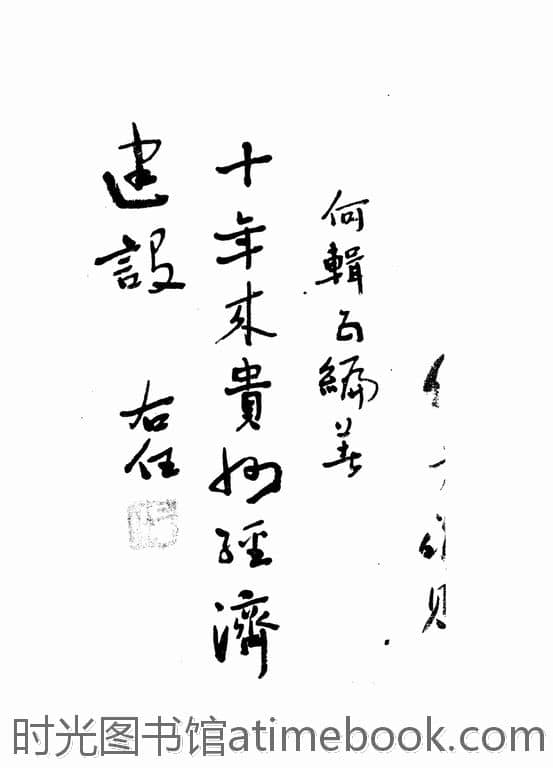 何輯五編著
十年來貴州經濟
建設 右任
时光图书馆atimebook.com